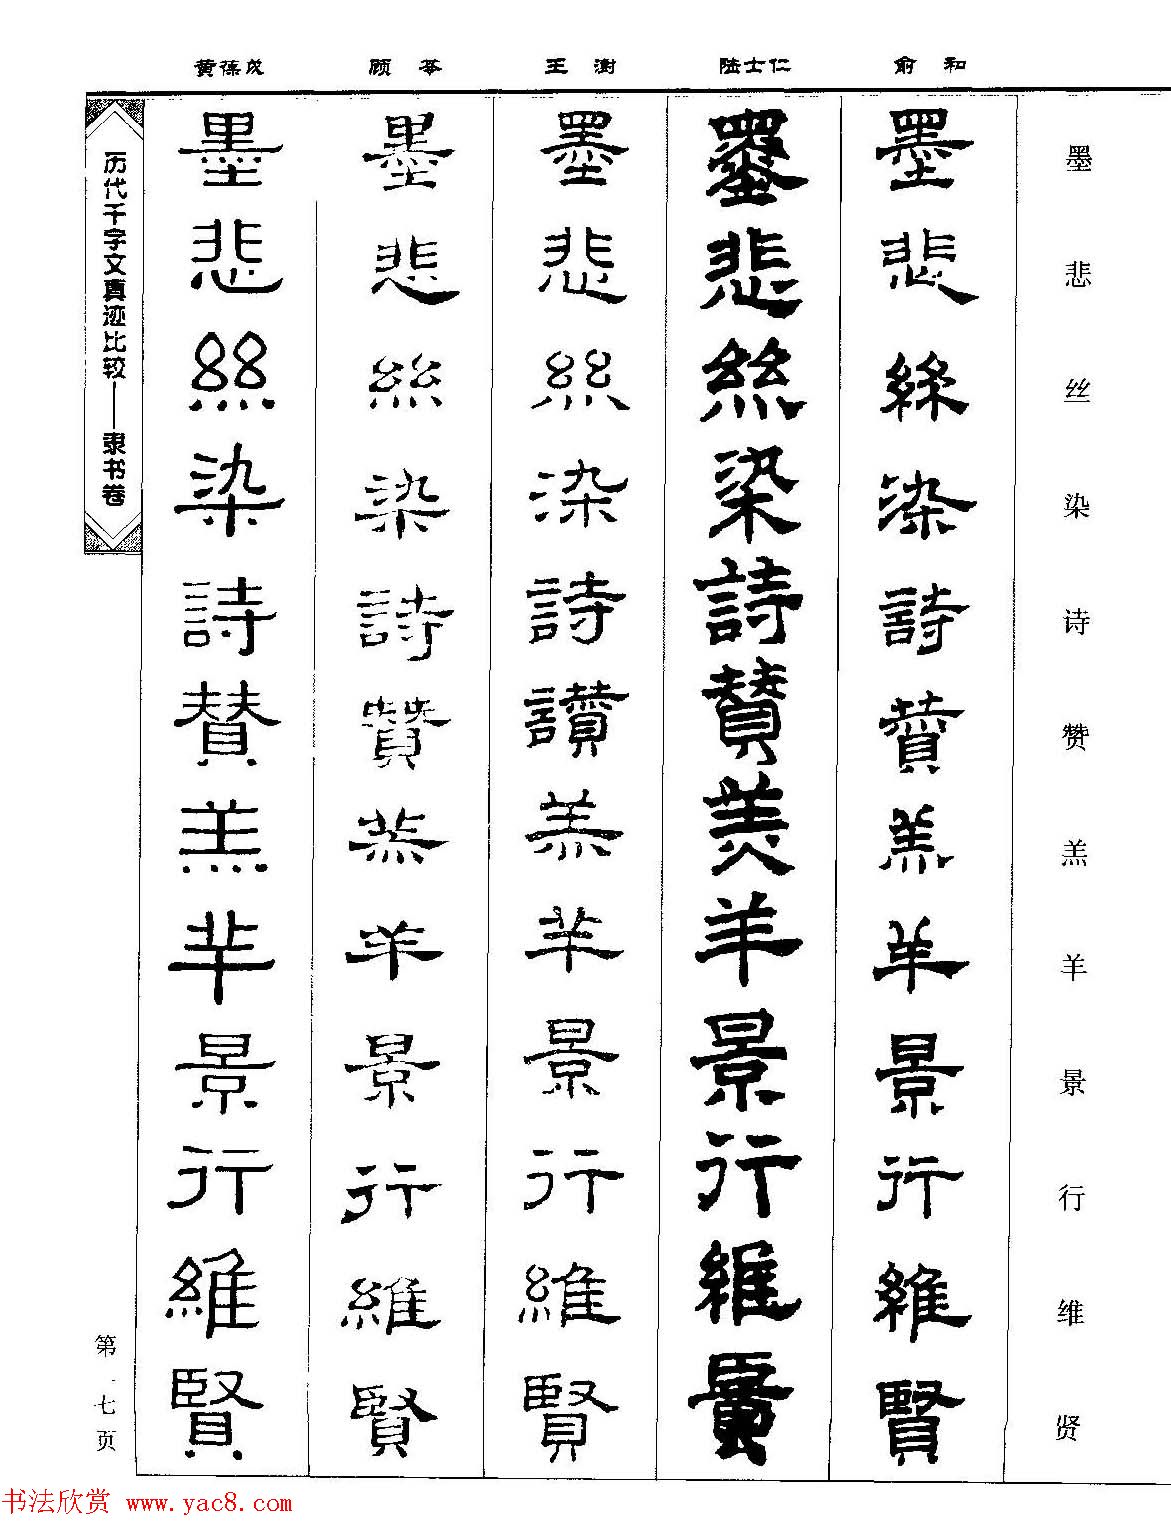 黄葆戊 顾苓 王澍 陆士仁 俞和
墨悲丝染诗赞羔羊景行维贤
墨悲絲染詩賛羔羊景行維賢
墨悲絲染詩賛羔羊景行維賢
墨悲絲染詩讃羔羊景行維賢
墨悲絲染詩贊羔羊景行維賢
墨悲絲染詩贊羔羊景行維賢
历代千字文真迹比较——隶书卷
第一七页
书法欣赏 www.yac8.com